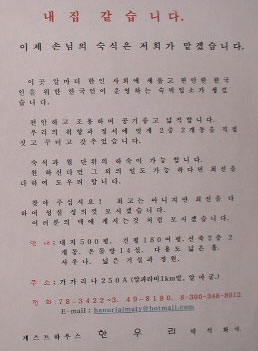 내 집 같습니다.
이제 손님의 숙식은 저희가 맡겠습니다.
이곳 알마티 한인 사회에 새롭고 편안한 한국
인을 위한 한국인이 운영하는 숙박업소가 생겼
습니다.
편안하고 조용하며 공기좋고 넓직합니다.
우리의 취향과 정서에 맞게 2층 2개동을 직접
짓고 꾸미고 갖추었습니다.
숙식과 월 단위의 하숙이 가능 합니다.
원 하신다면 그 외의 일도 가능 하다면 최선을
다하여 도우려 합니다.
찾아 주십시요! 최고는 아니지만 최선을 다
하여 성심 성의껏 모시겠습니다.
여러분의 댁에 계시는것 처럼 모시겠습니다.
안 내: 대지500평, 건평180여평, 신축2층 2
개동, 온돌방14실, 다용도 넓은홀,
사우나, 넓은 거실과 정원.
주 소: 가가리나250A
전 화: 78-3422-3. 49-8190.
E-mail:
게스트하우스 한 우 리